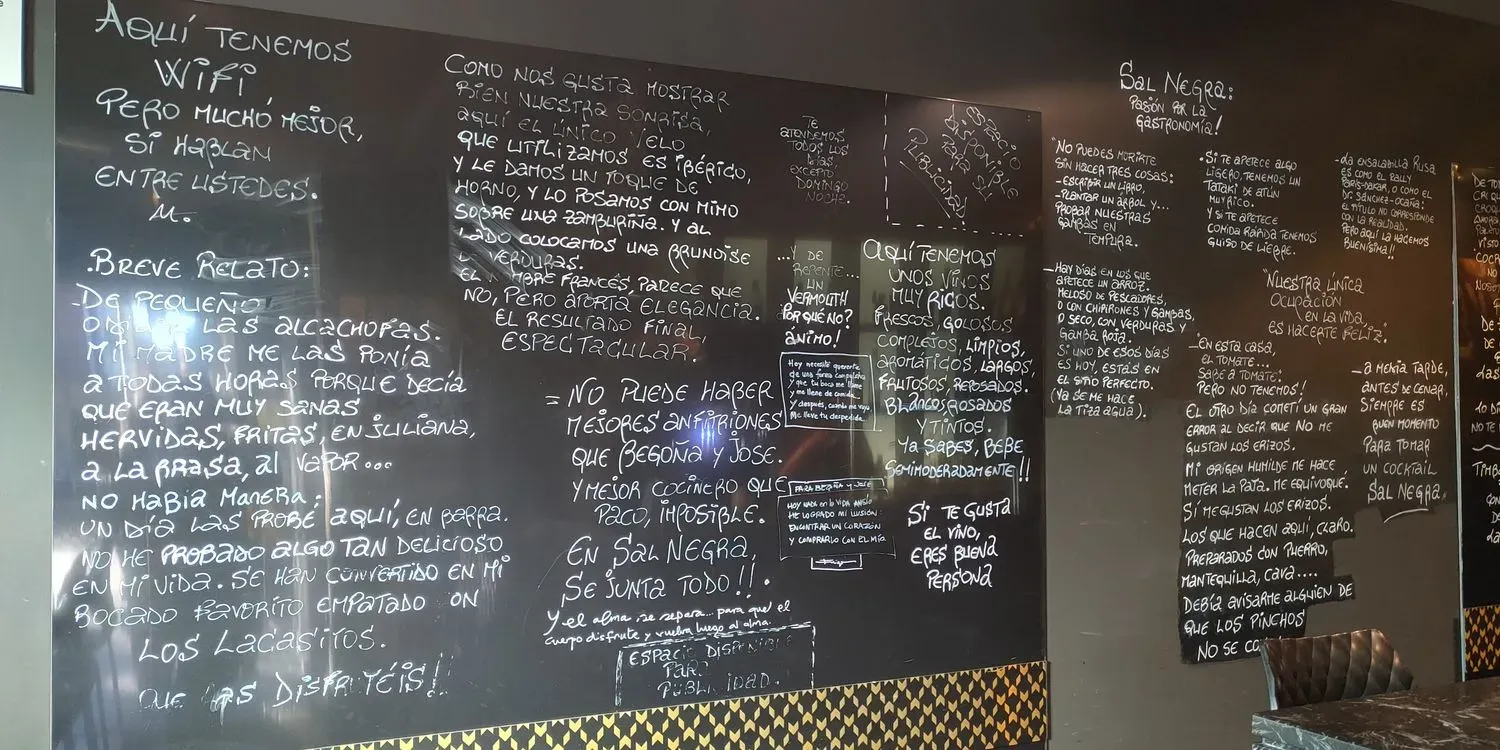 AQUÍ TENEMOS
WIFI
PERO MUCHO MEJOR,
SI HABLAN
ENTRE USTEDES.
M.
.BREVE RELATO:
DE PEQUEÑO
LAS ALCACHOFAS.
MI MADRE ME LAS PONÍA
A TODAS HORAS PORQUE DECÍA
QUE ERAN MUY SANAS
HERVIDAS, FRITAS, EN JULIANA,
A LA BRASA, AL VAPOR...
NO HABIA MANERA:
UN DÍA LAS PROBÉ AQUÍ, EN BARRA.
NO HE PROBADO ALGO TAN DELICIOSO
EN MI VIDA. SE HAN CONVERTIDO EN MI
BOCADO FAVORITO EMPATADO ON
LOS LACASITOS.
QUE LAS DISFRUTÉIS!!
COMO NOS GUSTA MOSTRAR
BIEN NUESTRA SONRISA,
AQUÍ EL ÚNICO VELO
QUE UTILIZAMOS ES IBÉRICO,
Y LE DAMOS UN TOQUE DE
HORNO, Y LO POSAMOS CON MIMO
SOBRE UNA ZAMBURIÑA. Y AL
LADO COLOCAMOS UNA BRUNOISE
VERDURAS.
EL NOMBRE FRANCÉS, PARECE QUE
NO, PERO APORTA ELEGANCIA.
EL RESULTADO FINAL,
ESPECTACULAR.
= NO PUEDE HABER
MEJORES ANFITRIONES
QUE BEGOÑA Y JOSE.
Y MEJOR COCINERO QUE
PACO, IMPOSIBLE.
EN SAL NEGRA,
SE JUNTA TODO!!.
Y el alma se separa... para que el
cuerpo disfrute y vuelva luego al alma.
ESPACIO DISPONIBLE
PARA
PUBLICIDAD.
TE
ATENDEMOS
TODOS LOS
DÍAS,
EXCEPTO
DOMINGO
NOCHE.
...Y DE
REPENTE...
UN
VERMOUTH
¿POR QUÉ NO?
ÁNIMO!
Hoy necesito quererte
de una forma
y que tu boca me llame
y me llene de comida
Y después, cuando me vaya
Me lleve tu despedida.
PARA BEGOÑA Y JOSE
HOY NADA en la VIDA ANSÍO
HE LOGRADO MI ILUSIÓN:
ENCONTRAR UN CORAZÓN
Y COMPRARLO CON EL MÍO
ESPACIO
DISPONIBLE
PARA SU
PUBLICIDAD
AQUÍ TENEMOS
UNOS VINOS
MUY RICOS.
FRESCOS, GOLOSOS
COMPLEJOS, LIMPIOS,
AROMÁTICOS, LARGOS,
FRUTOSOS, REPOSADOS.
BLANCOS, ROSADOS
Y TINTOS.
YA SABES, BEBE
SEMIMODERADAMENTE!!
SI TE GUSTA
EL VINO,
ERES BUENA
PERSONA
SAL NEGRA:
PASIÓN POR LA
GASTRONOMÍA!
"NO PUEDES MORIRTE
SIN HACER TRES COSAS:
-ESCRIBIR UN LIBRO.
-PLANTAR UN ÁRBOL Y...
PROBAR NUESTRAS
GAMBAS EN
TEMPURA.
-HAY DÍAS EN LOS QUE
APETECE UN ARROZ.
MELOSO DE PESCADORES,
O CON CHIPIRONES Y GAMBAS,
O SECO, CON VERDURAS Y
GAMBA ROJA.
SI UNO DE ESOS DÍAS
ES HOY, ESTÁS EN
EL SITIO PERFECTO.
(YA SE ME HACE
LA TIZA AGUA).
•SI TE APETECE ALGO
LIGERO, TENEMOS UN
TATAKI DE ATÚN
MUY RICO.
Y SI TE APETECE
COMIDA RÁPIDA TENEMOS
GUISO DE LIEBRE.
-LA ENSALADILLA RUSA
ES COMO EL RALLY
PARIS-DAKAR, O COMO EL
DR. SÁNCHEZ-OCAÑA:
EL TÍTULO NO CORRESPONDE
CON LA REALIDAD.
PERO AQUÍ LA HACEMOS
BUENÍSIMA!!
"NUESTRA ÚNICA
OCUPACIÓN
EN LA VIDA
ES HACERTE FELIZ".
-EN ESTA CASA,
EL TOMATE...
SABE A TOMATE!
PERO NO TENEMOS!
EL OTRO DÍA COMETÍ UN GRAN
ERROR AL DECIR QUE NO ME
GUSTAN LOS ERIZOS.
MI ORIGEN HUMILDE ME HACE
METER LA PATA. ME EQUIVOQUÉ.
SÍ ME GUSTAN LOS ERIZOS.
LOS QUE HACEN AQUÍ, CLARO.
PREPARADOS CON PUERRO,
MANTEQUILLA, CAVA....
DEBÍA AVISARME ALGUIEN DE
QUE LOS PINCHOS
NO SE CO
-A MEDIA TARDE,
ANTES DE CENAR,
SIEMPRE ES
BUEN MOMENTO
PARA TOMAR
UN COCKTAIL
SAL NEGRA.